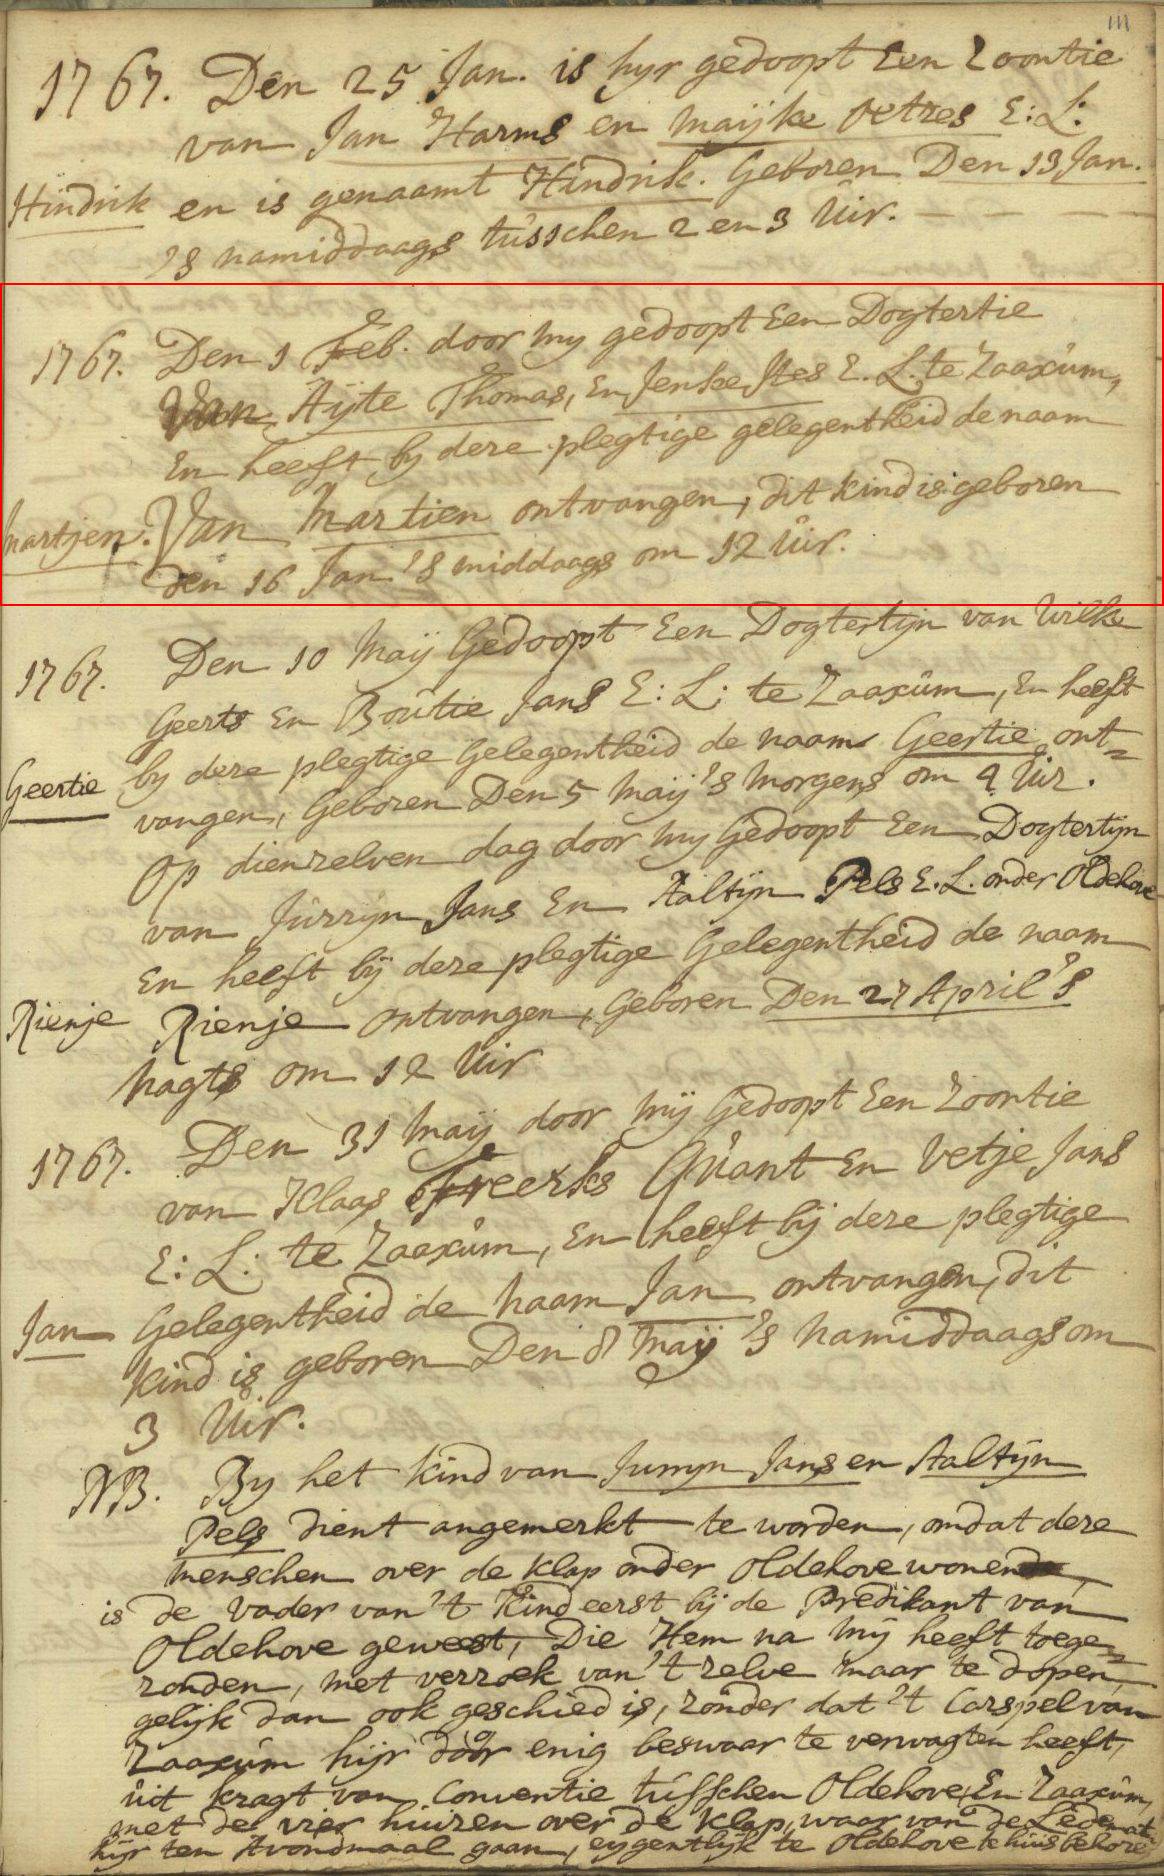 111
1767. Den 25 Jan. is hyr gedoopt Een Zoontie
van Jan Harms en Maijke Petres E: L:
Hindrik en is genaamt Hindrik. Geboren Den 13 Jan.
's namiddaags tusschen 2 en 3 Uir.
1767. Den 1 Feb. door my gedoopt Een Dogtertie
Van Aijte Thomas, En Jenke Ites E. L. te Zaaxum,
En heeft by deze plegtige gelegentheid de naam
Martjen. Van Martien ontvangen, dit kind is geboren
den 16 Jan 's middaags om 12 Uir.
1767. Den 10 Maij Gedoopt Een Dogtertijn van Wilke
Geerts En Boutie Jans E: L: te Zaaxum, En heeft
by deze plegtige Gelegentheid de naam Geertie ont=
Geertie vangen, Geboren Den 5 Maij 's Morgens om 9 Uir.
Op dienzelven dag door my Gedoopt Een Dogtertijn
van Jurrijn Jans En Aaltijn Pels E. L. onder Oldehove
En heeft bij deze plegtige Gelegentheid de naam
Rienje Rienje ontvangen, Geboren Den 27 April 's
Nagts om 12 Uir
1767. Den 31 Maij door mij Gedoopt Een Zoontie
van Klaas Freerks Quant En Vetje Jans
E: L: te Zaaxum, En heeft bij deze plegtige
Jan Gelegentheid de Naam Jan ontvangen, dit
Kind is geboren Den 8 Maij 's Namiddaags om
3 Uir.
NB. By het Kind van Jurryn Jans en Aaltijn
Pels dient angemerkt te worden, omdat deze
menschen over de Klap onder Oldehove wonen
is de Vader van 't Kind eerst bij de Predikant van
Oldehove geweest, Die Hem na Mij heeft toege=
zonden, met verzoek van 't zelve maar te dopen,
gelijk dan ook geschied is, zonder dat 't Carspel van
Zaaxum hijr door enig beswaar te verwagten heeft,
uit kragt van Conventie tusschen Oldehove En Zaaxum,
met de vier huizen over de Klap, waar van de Ledematen
hijr ten Avondmaal gaan, eygentlijk te Oldehove t'huis behoren